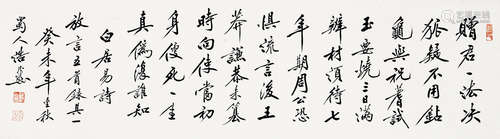 贈君一法决
狐疑不用鑽
龜與祝蓍試
玉要燒三日滿
辨材須待七
年期周公恐
懼流言後王
莽謙恭未篡
時向使當初
身便死一生
真偽復誰知
白居易詩
放言五首錄其一
癸未年秋
蜀人浩